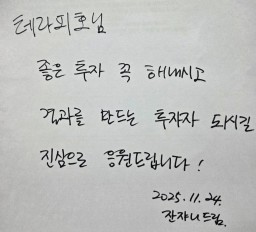 테라피호님
좋은 투자 꼭 해내시고
결과를 만드는 투자자 되시길
진심으로 응원드립니다!
2025. 11. 24.
잔쟈니드림.